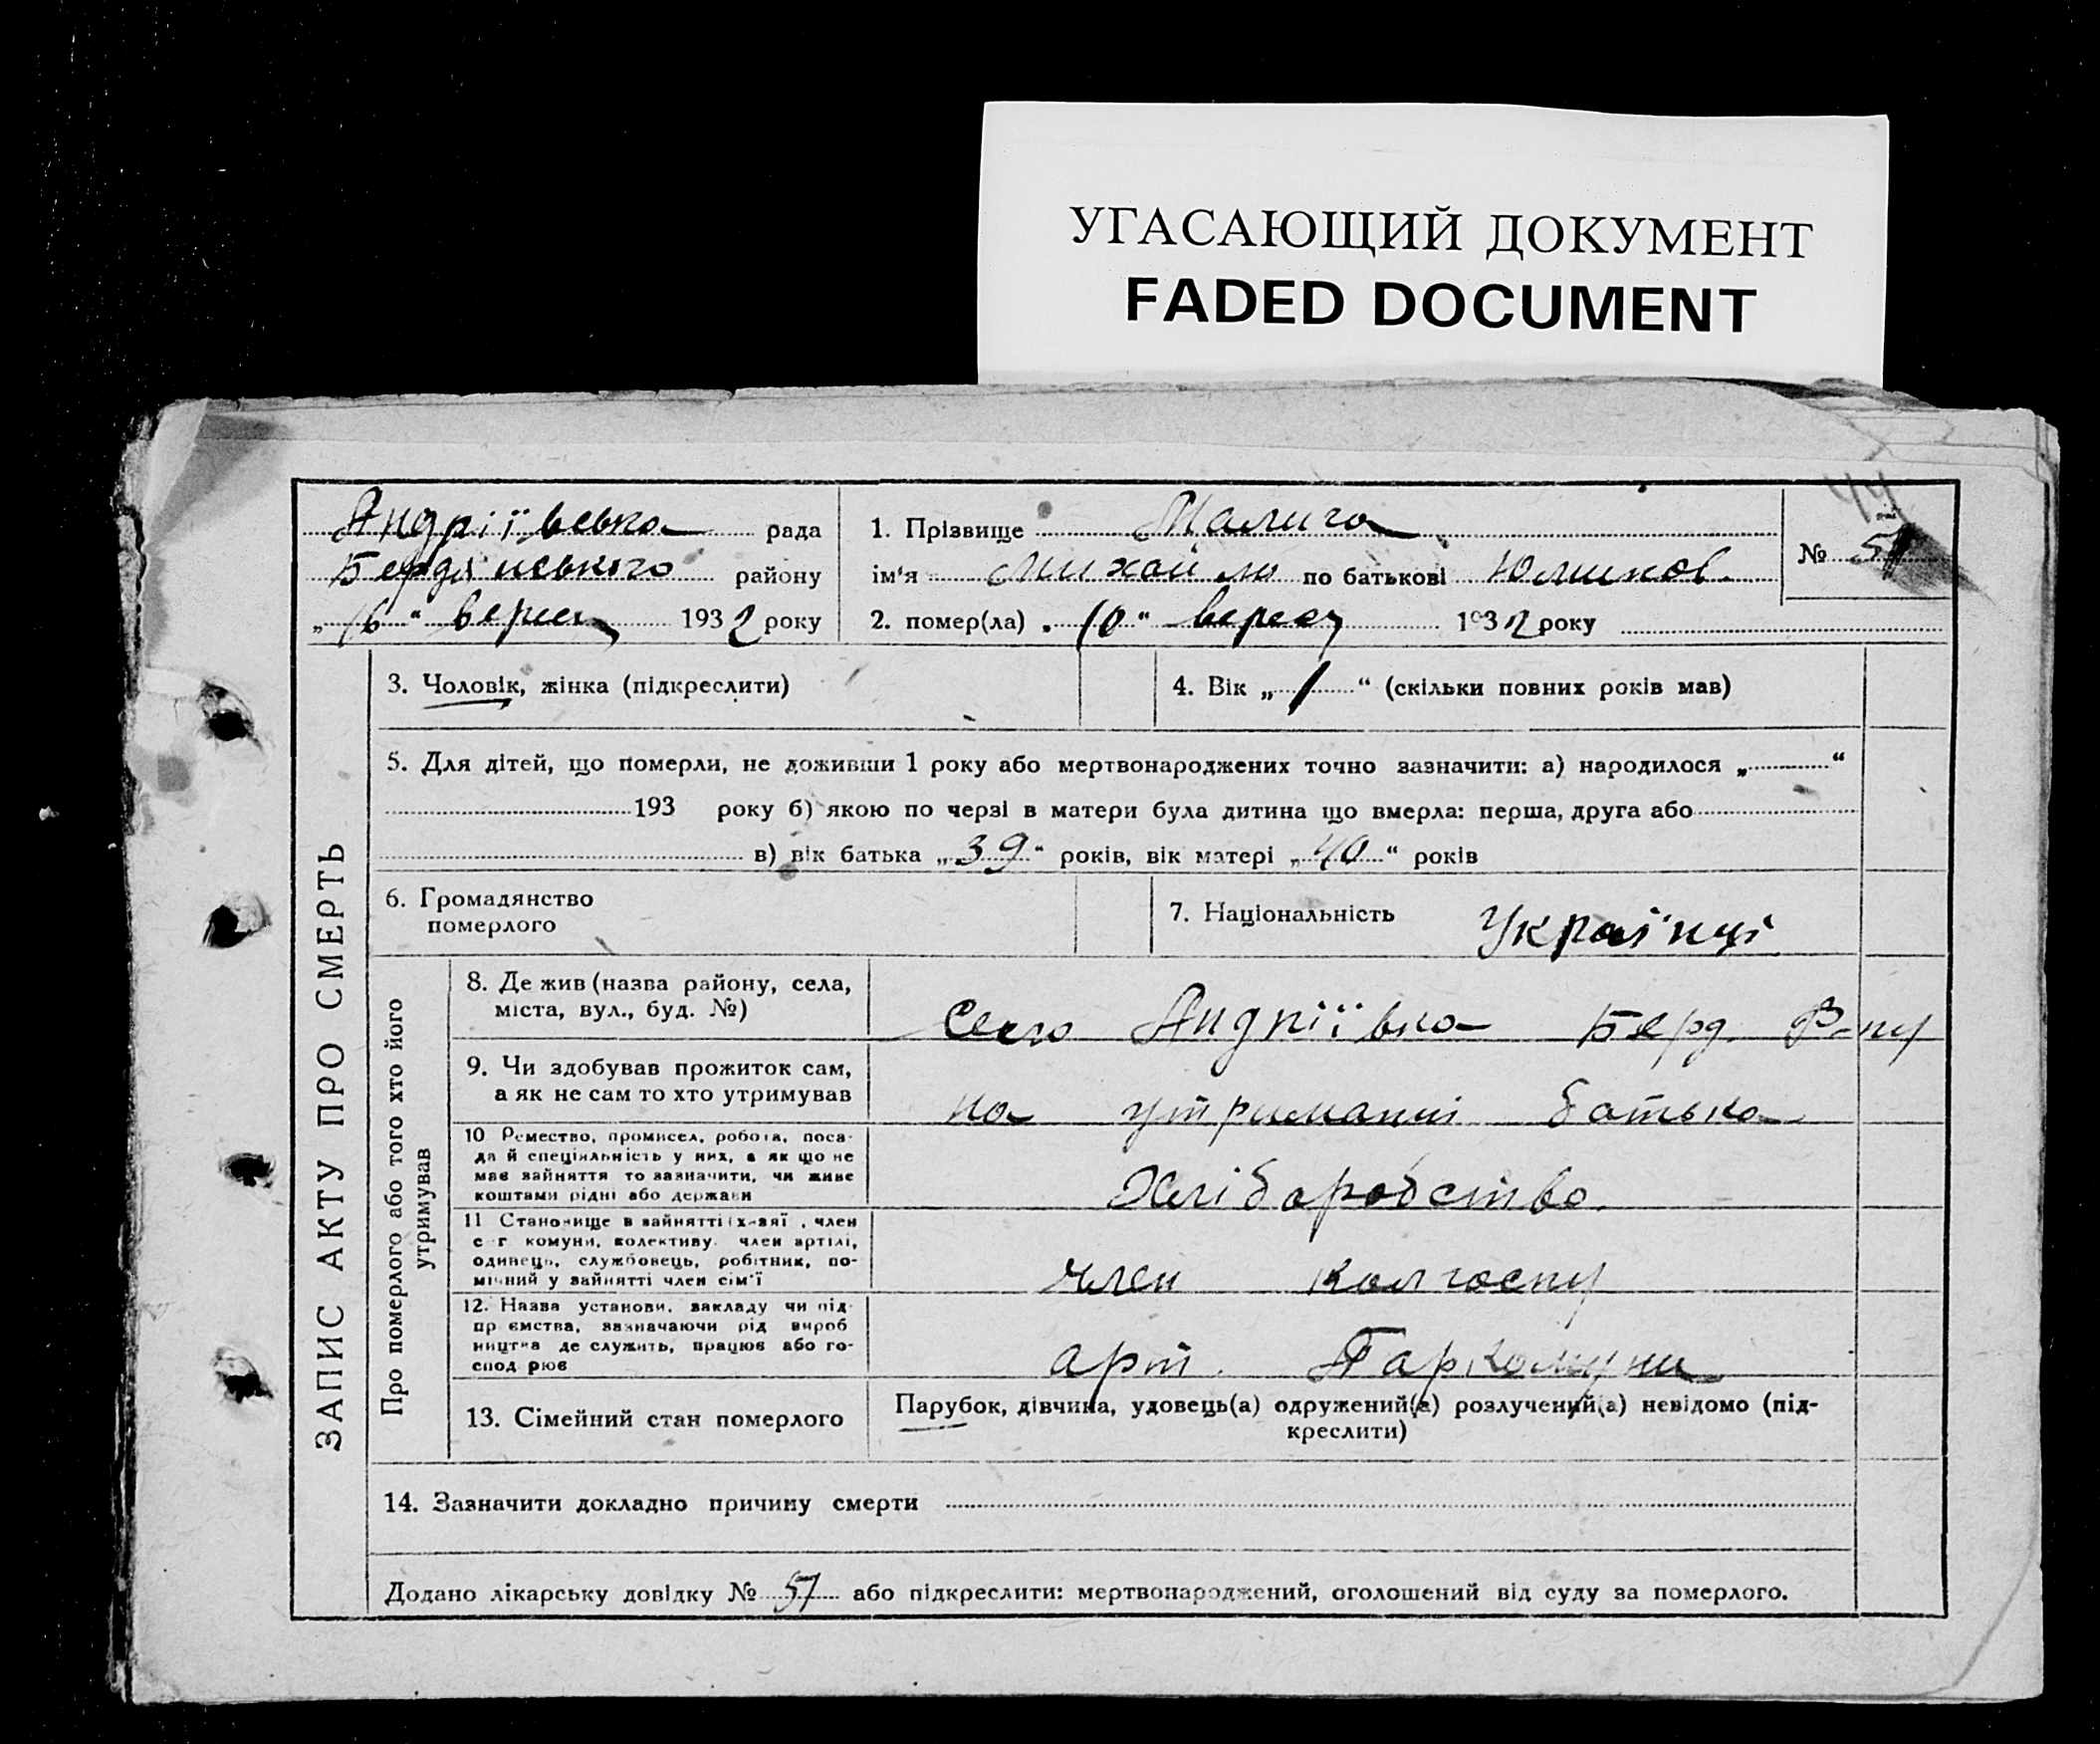 УГАСАЮЩИЙ ДОКУМЕНТ
FADED DOCUMENT
44
Андріївська рада
Бердянського району
„16“ вересн 1932 року
1. Прізвище Малига
ім'я Михайло по батькові
2. помер(ла) „10“ вересн 1932 року
№
ЗАПИС АКТУ ПРО СМЕРТЬ
3. Чоловік, жінка (підкреслити)
4. Вік „1“ (скільки повних років мав)
5. Для дітей, що померли, не доживши 1 року або мертвонароджених точно зазначити: а) народилося „ “
193 року б) якою по черзі в матери була дитина що вмерла: перша, друга або
в) вік батька „39“ років, вік матері „40“ років
6. Громадянство
померлого
7. Національність Українці
Про померлого або того хто його
утримував
8. Де жив (назва району, села,
міста, вул., буд. №)
Село Андріївка Берд. Р-ну
9. Чи здобував прожиток сам,
а як не сам то хто утримував
на утриманні батька
10 Ремество, промисел, робота, поса-
да й спеціяльність у них, а як що не
має зайняття то зазначити, чи живе
коштами рідні або держави
Хліборобство.
11 Становище в зайнятті (х-зяї , член
с-г комуни, колективу, член артілі,
одинець, службовець, робітник, по-
мічний у зайнятті член сім'ї
член колгоспу
12. Назва установи, закладу чи під-
пр ємства, зазначаючи рід вироб
ництва де служить, працює або го-
спод рює
арт. Паркомуни
13. Сімейний стан померлого
Парубок, дівчина, удовець(а) одружений(а) розлучений(а) невідомо (під-
креслити)
14. Зазначити докладно причину смерти
Додано лікарську довідку № 57 або підкреслити: мертвонароджений, оголошений від суду за померлого.